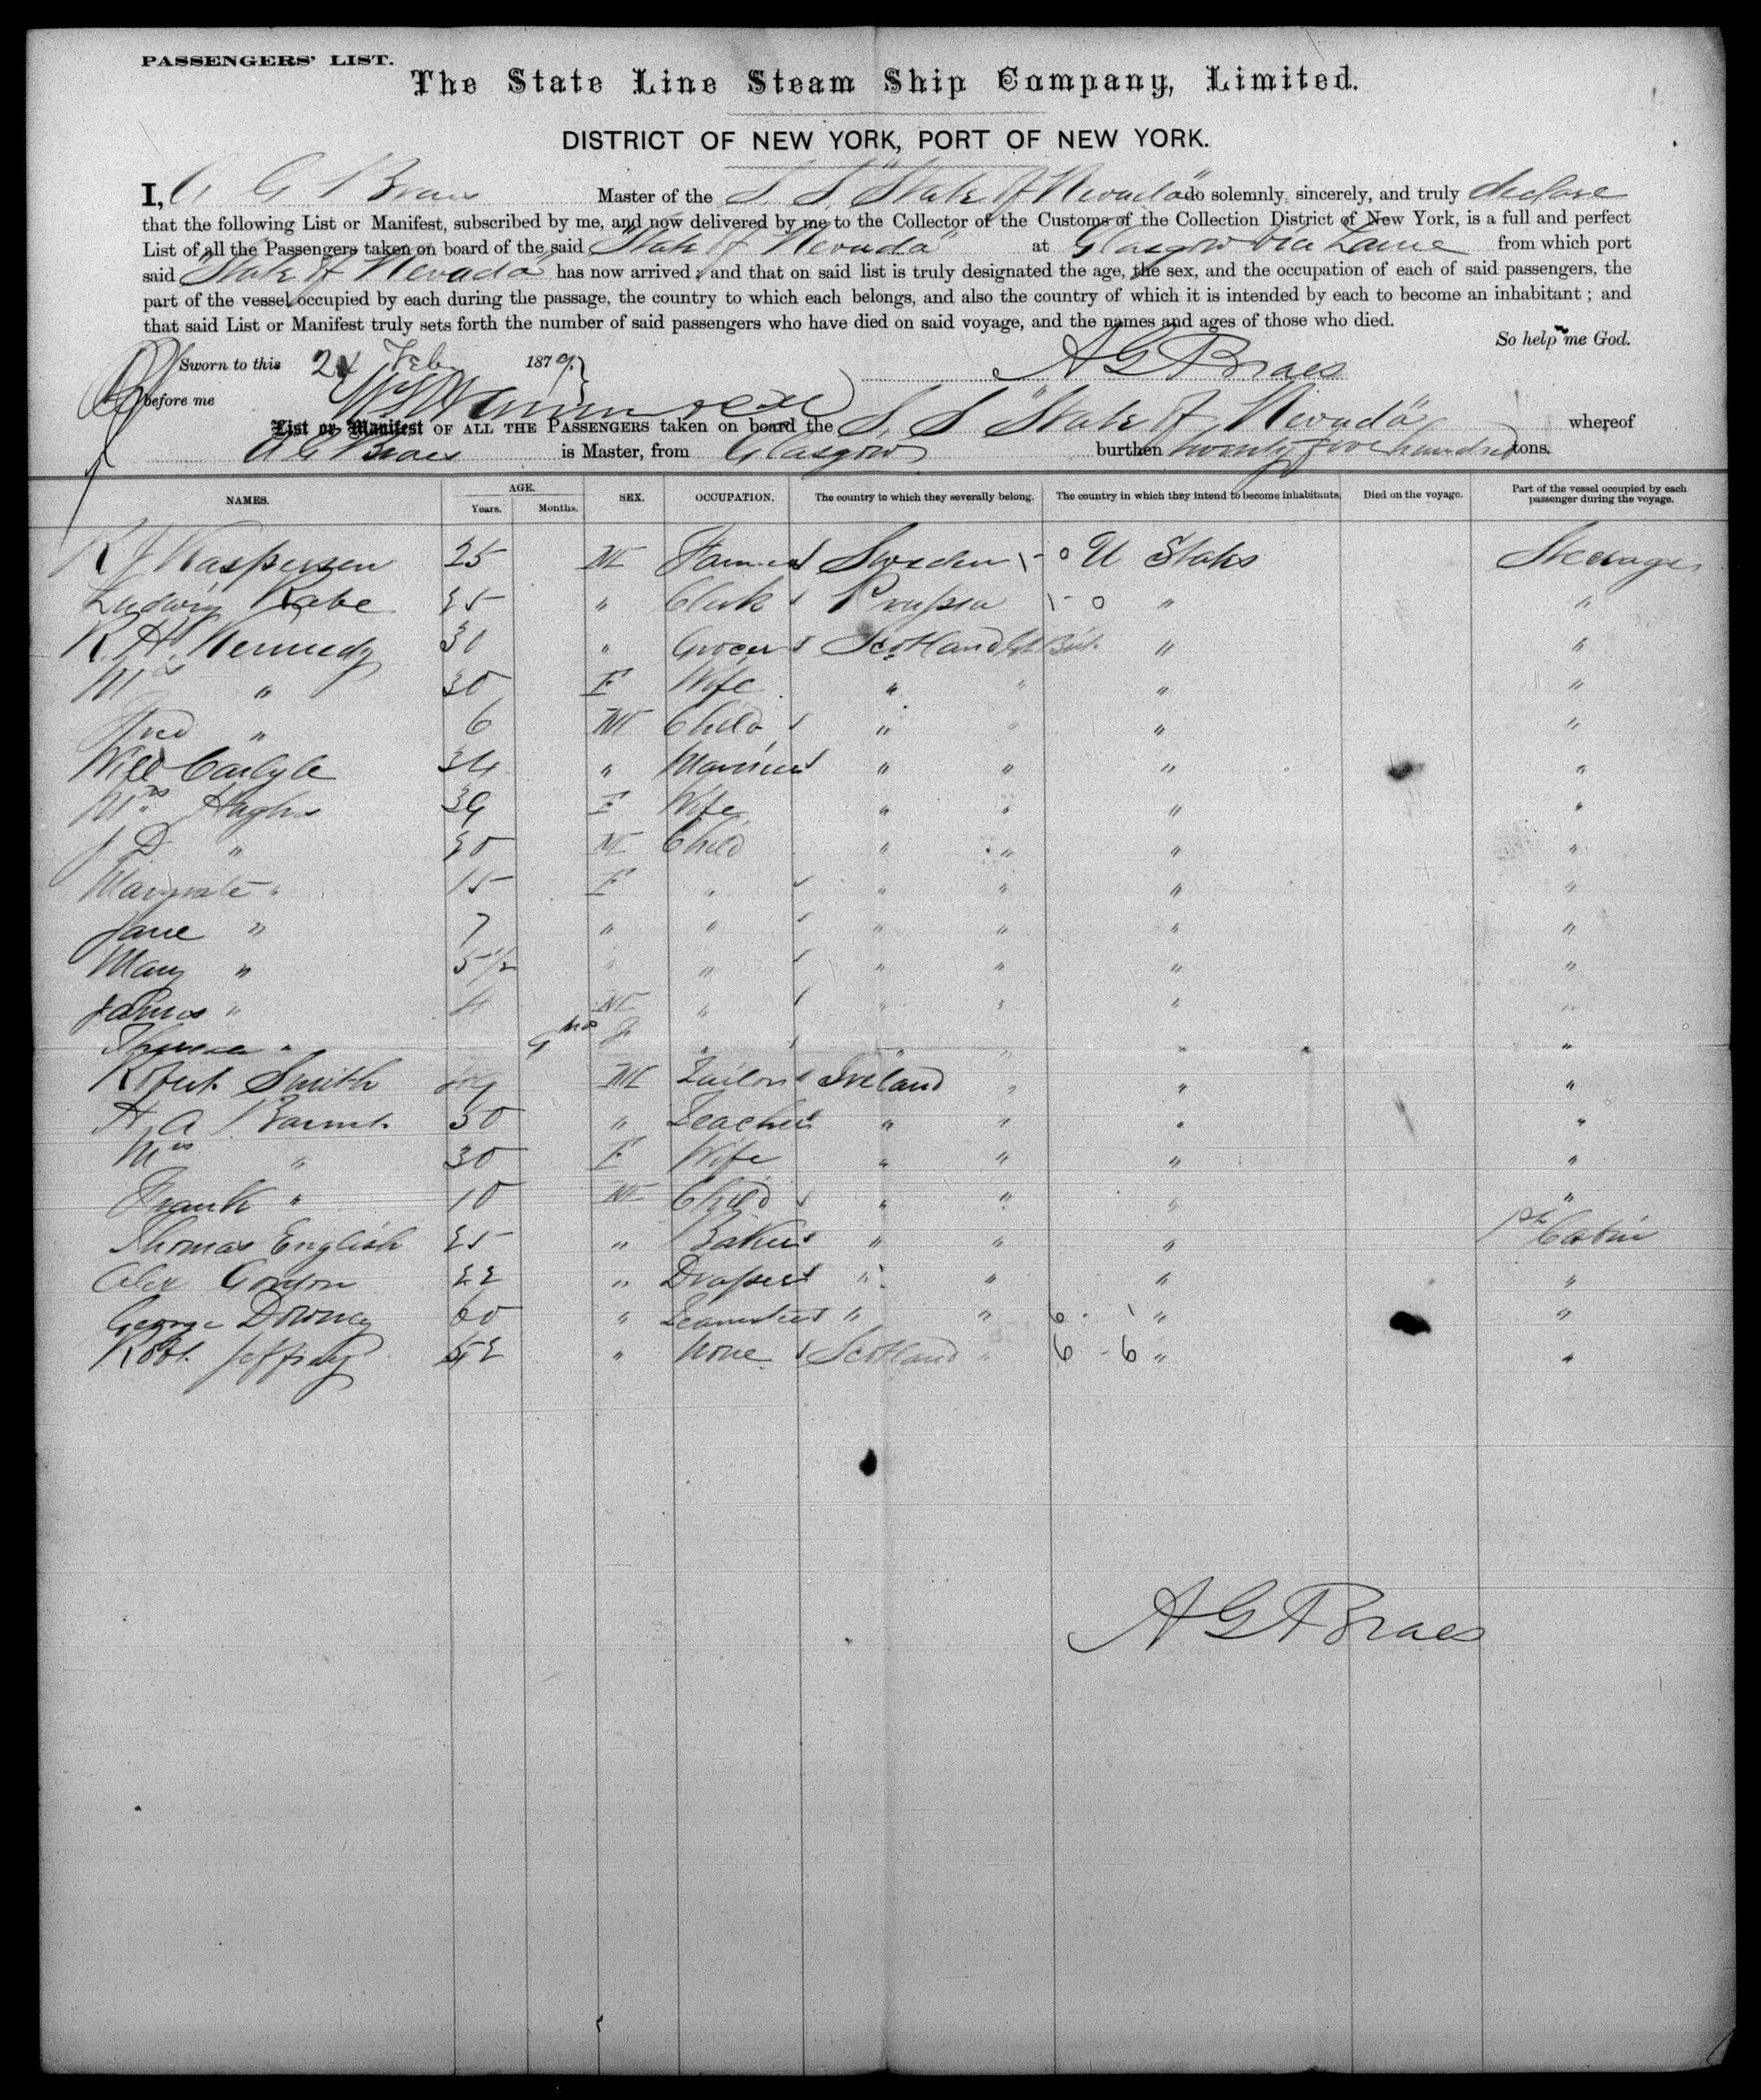 PASSENGERS' LIST.
The State Line Steam Ship Company, Limited.
DISTRICT OF NEW YORK, PORT OF NEW YORK.
I, A G Braes Master of the S. S. "State of Nevada" do solemnly, sincerely, and truly declare
that the following List or Manifest, subscribed by me, and now delivered by me to the Collector of the Customs of the Collection District of New York, is a full and perfect
List of all the Passengers taken on board of the said "State of Nevada" at Glasgow via Larne from which port
said "State of Nevada" has now arrived; and that on said list is truly designated the age, the sex, and the occupation of each of said passengers, the
part of the vessel occupied by each during the passage, the country to which each belongs, and also the country of which it is intended by each to become an inhabitant; and
that said List or Manifest truly sets forth the number of said passengers who have died on said voyage, and the names and ages of those who died.
So help me God.
Sworn to this 24 Feb 1879
A G Braes
before me
List or Manifest OF ALL THE PASSENGERS taken on board the S. S "State of Nevada" whereof
A G Braes is Master, from Glasgow burthen twenty five hundred tons.
NAMES. AGE. Years. Months. SEX. OCCUPATION. The country to which they severally belong. The country in which they intend to become inhabitants. Died on the voyage. Part of the vessel occupied by each passenger during the voyage.
R J Kaspersen 25 M Farmer Sweden U States Steerage
Ludwig Rabe 25 " Clerk Prussia " "
R. H. Kennedy 30 " Grocer Scotland " "
Mrs " 30 F Wife " " " "
Fred " 6 M Child " " " "
Will Carlyle 34 " Mariner " " " "
Mrs Hughs 39 F Wife " " " "
J D " 20 M Child " " " "
Margrate " 15 F " " " " "
Jane " 7 " " " " " "
Mary " 5 1/2 " " " " " "
James " 4 M " " " " "
" 9 mos F " " " " "
Robert Smith 49 M Tailor Ireland " " "
H A 30 " Teacher " " " "
Mrs " 30 F Wife " " " "
Frank " 10 M Child " " " "
Thomas English 25 " Baker " " " 1st Cabin
Alex Gordon 22 " Draper " " " "
George Downey 60 " Teamster " " 6 - 1 " "
Robt. Jeffray 52 " None Scotland " 6 - 6 " "
A G Braes